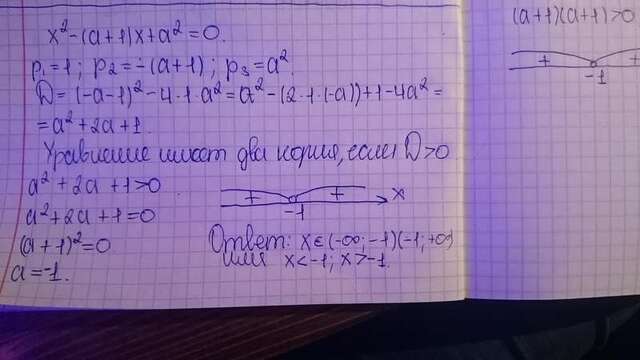 x² - (a+1)x + a² = 0.
p₁ = 1; p₂ = -(a+1); p₃ = a².
D = (-a-1)² - 4·1·a² = a² - (2·1·(-a)) + 1 - 4a² =
= a² + 2a + 1.
Уравнение имеет два корня, если D > 0
a² + 2a + 1 > 0
a² + 2a + 1 = 0
(a+1)² = 0
a = -1.
+ + x
-1
Ответ: x ∈ (-∞; -1)(-1; +∞)
или x < -1; x > -1.
(a+1)(a+1) > 0
+ +
-1